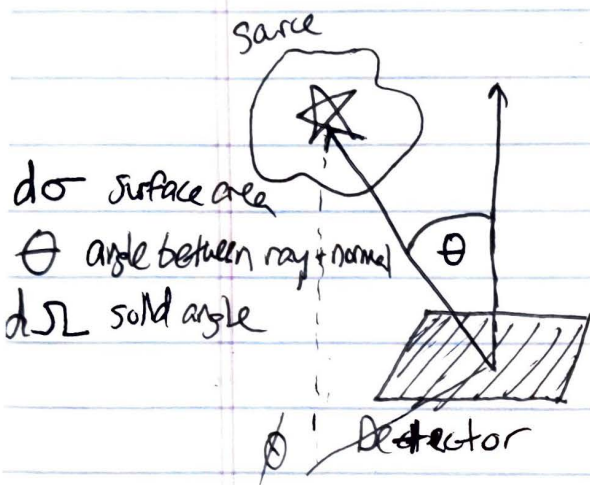 Source
dσ surface area
θ angle between ray + normal
θ
dΩ solid angle
Detector
ϕ